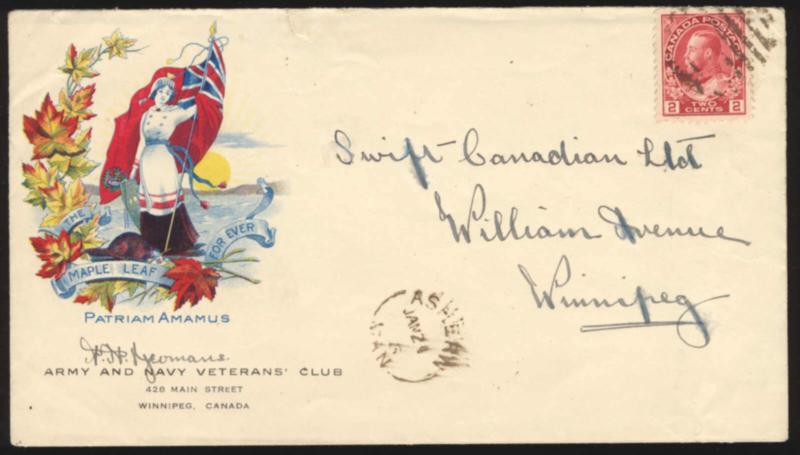 CANADA POSTAGE
2 TWO CENTS 2
THE
MAPLE LEAF
FOR EVER
PATRIAM AMAMUS
Yeomans.
ARMY AND NAVY VETERANS' CLUB
428 MAIN STREET
WINNIPEG, CANADA
Swift Canadian Ltd
William Avenue
Winnipeg
ASHERN
JAN 24
MAN